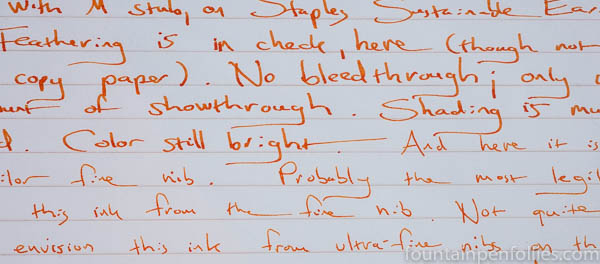 with M stub, on Staples Sustainable Ear
Feathering is in check, here (though not
copy paper). No bleedthrough; only
of showthrough. Shading is mu
d. Color still bright. And here it is
fine nib. Probably the most legi
this ink from the fine nib. Not quite
envision this ink from ultra-fine nibs on th
fountainpenfollies.com